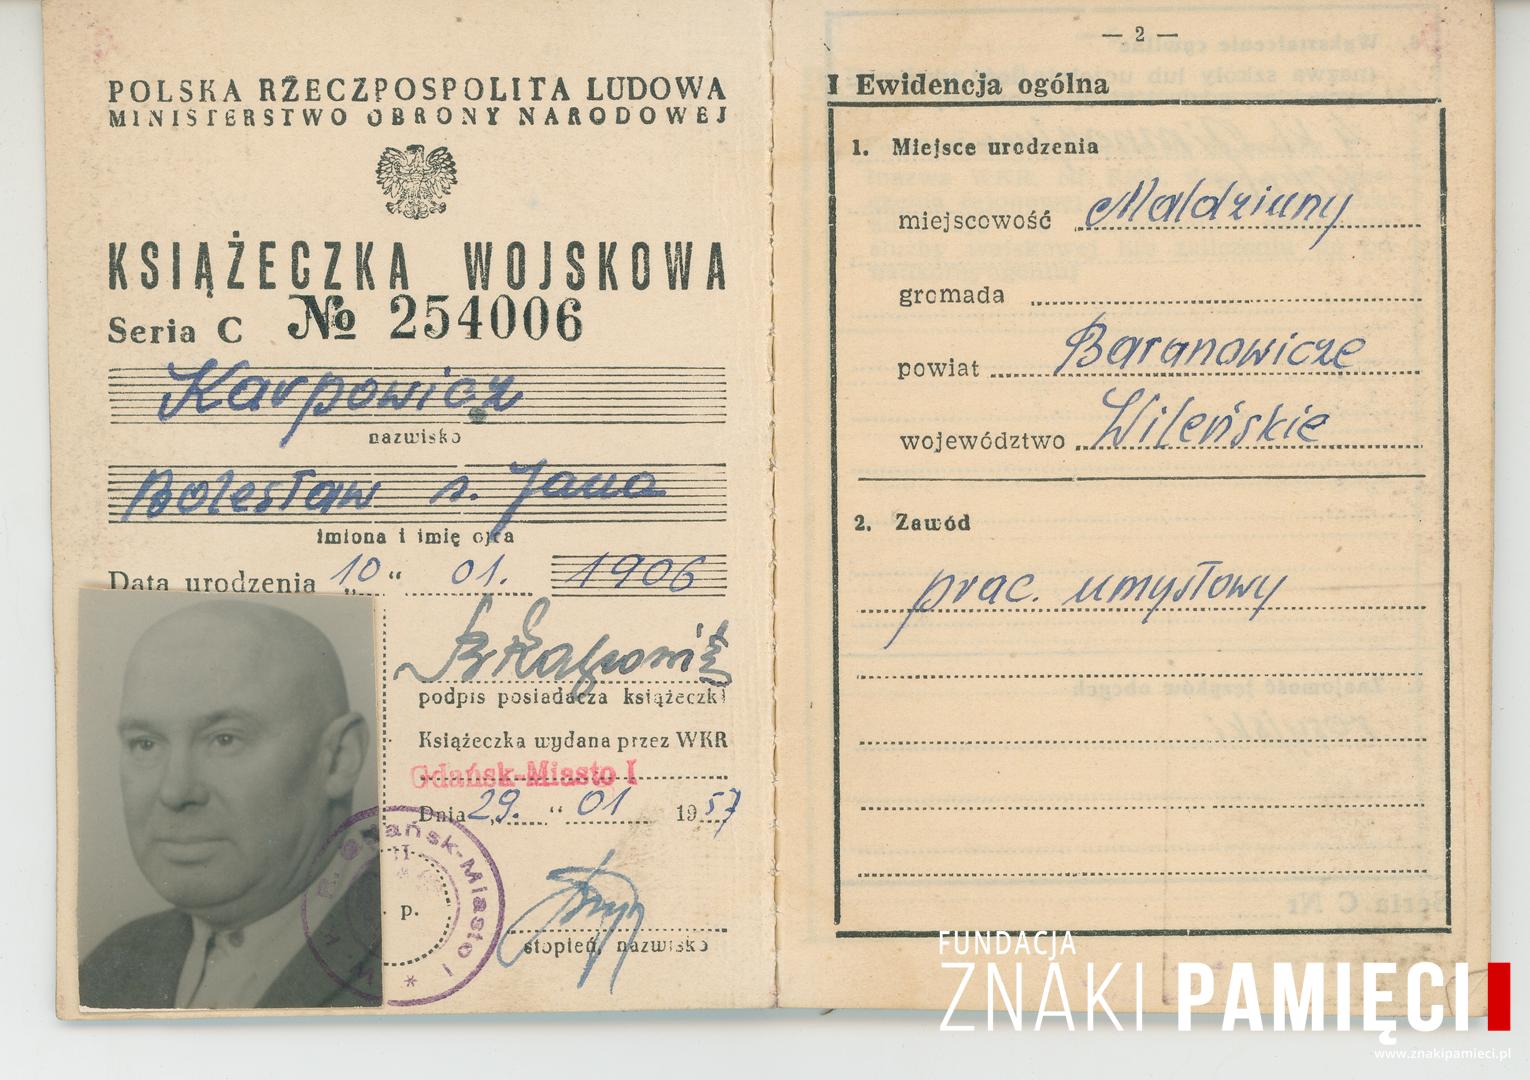 POLSKA RZECZPOSPOLITA LUDOWA
MINISTERSTWO OBRONY NARODOWEJ
KSIĄŻECZKA WOJSKOWA
Seria C № 254006
Karpowicz
nazwisko
Bolesław s. Jana
imiona i imię ojca
Data urodzenia „10“ 01. 1906
BKarpowicz
podpis posiadacza książeczki
Książeczka wydana przez WKR
Gdańsk-Miasto I
Dnia „29.“ 01 1957
Gdańsk-Miasto I
p.
stopień, nazwisko
— 2 —
I Ewidencja ogólna
1. Miejsce urodzenia
miejscowość Małdziuny
gromada
powiat Baranowicze
województwo Wileńskie
2. Zawód
prac. umysłowy
FUNDACJA
ZNAKI PAMIĘCI
www.znakipamieci.pl